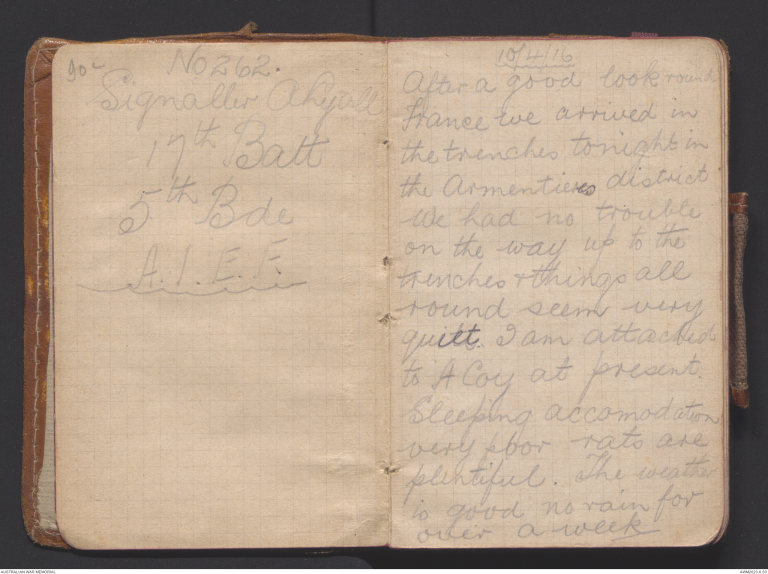 90
No 262.
Signaller A Lyall
17th Batt
5th Bde
A.I.E.F.
10/4/16
After a good look round
France we arrived in
the trenches tonight in
the Armentieres district
We had no trouble
on the way up to the
trenches & things all
round seem very
quiet. I am attached
to A Coy at present.
Sleeping accomodation
very poor rats are
plentiful. The weather
is good no rain for
over a week
AUSTRALIAN WAR MEMORIAL